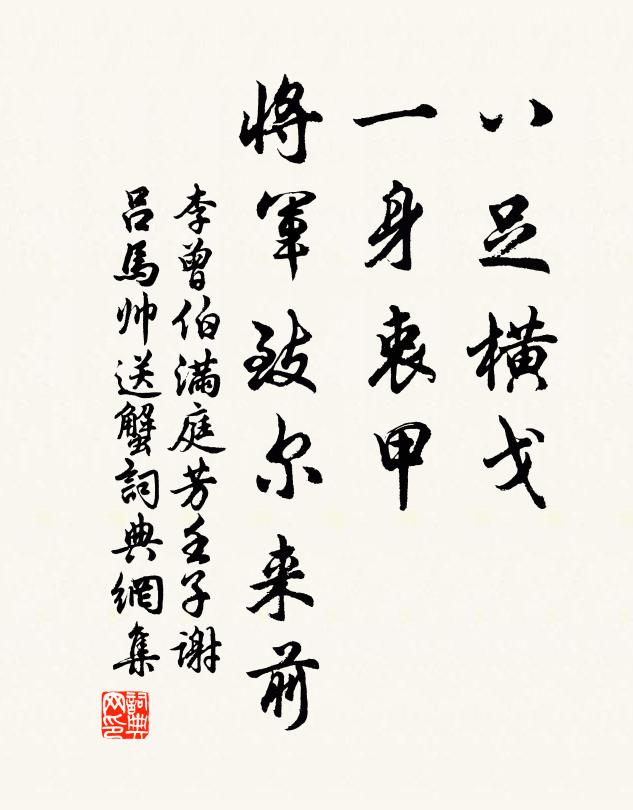 八足橫戈
一身衷甲
將軍致尔来前
李曾伯满庭芳壬子谢
吕馬帅送蟹詞典網集
詞典网印